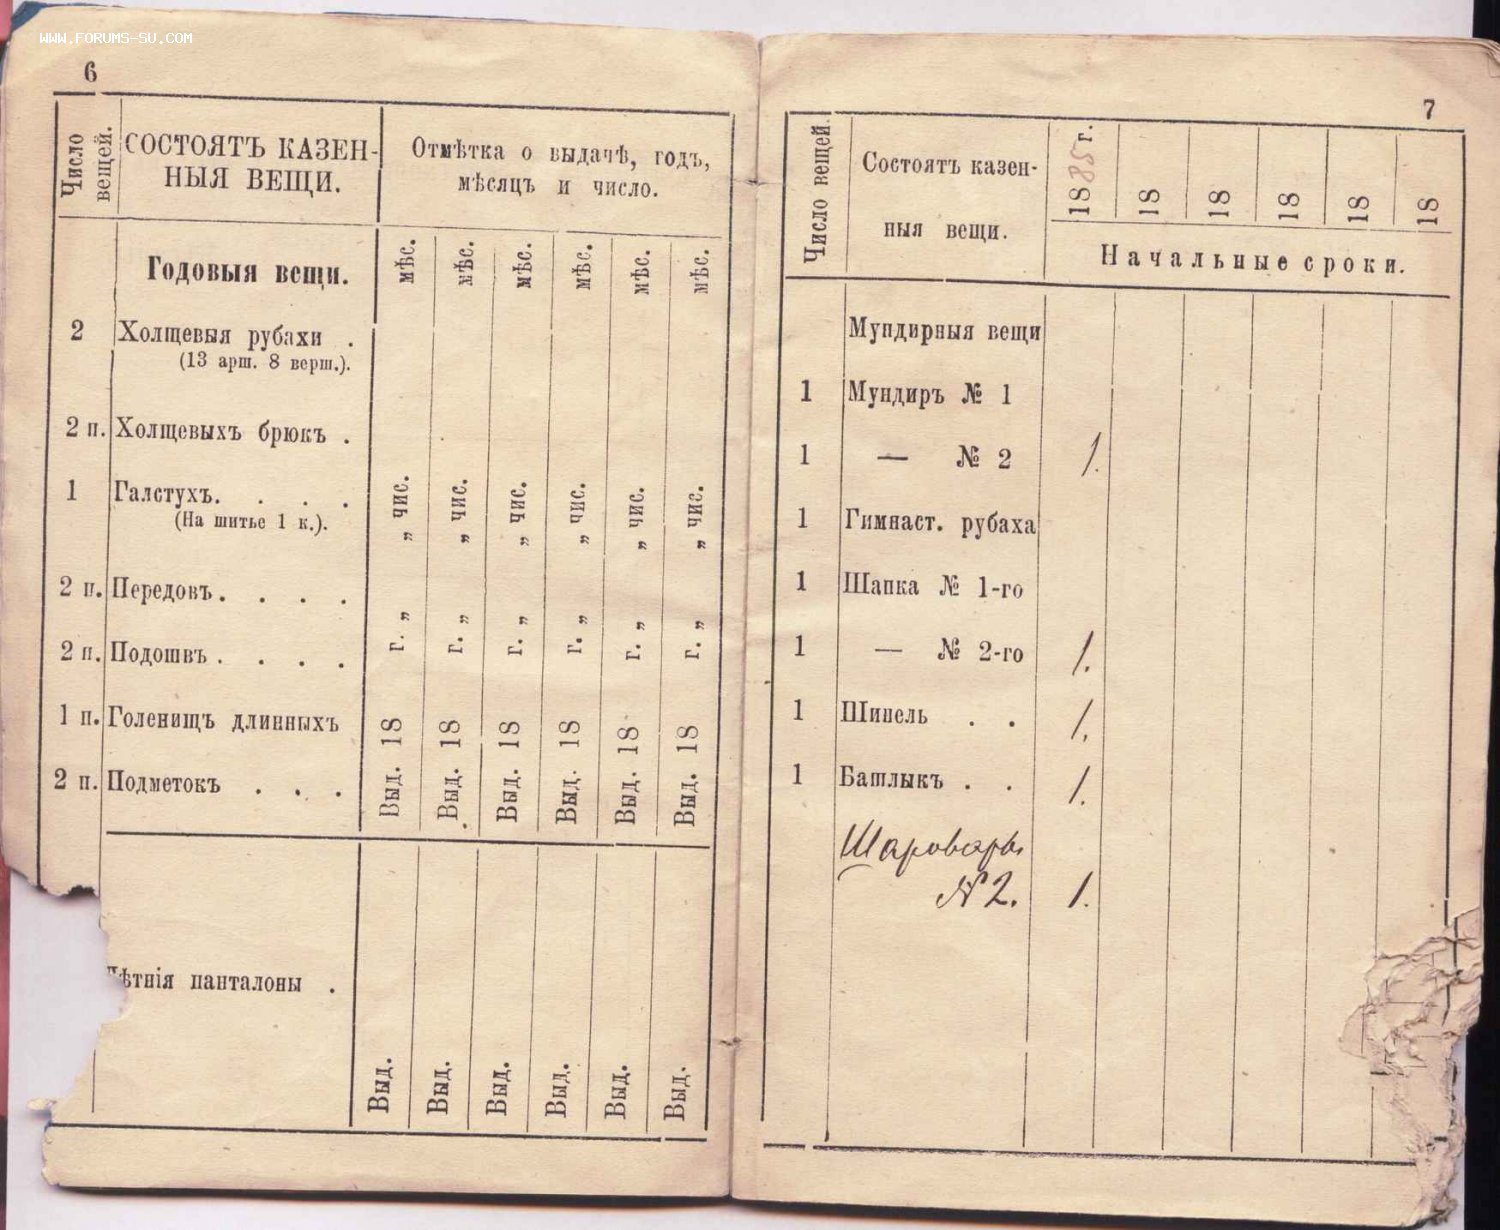 WWW.FORUMS-SU.COM
6
Число вещей.
СОСТОЯТЪ КАЗЕН-
НЫЯ ВЕЩИ.
Отмѣтка о выдачѣ, годъ,
мѣсяцъ и число.
Годовыя вещи.
мѣс. мѣс. мѣс. мѣс. мѣс. мѣс.
2 Холщевыя рубахи .
(13 арш. 8 верш.).
2 п. Холщевыхъ брюкъ .
1 Галстухъ. . . .
(На шитье 1 к.).
„ чис. „ чис. „ чис. „ чис. „ чис. „ чис.
2 п. Передовъ. . . .
г. „ г. „ г. „ г. „ г. „ г. „
2 п. Подошвъ . . . .
1 п. Голенищъ длинныхъ
2 п. Подметокъ . . .
Выд. 18 Выд. 18 Выд. 18 Выд. 18 Выд. 18 Выд. 18
ѣтнія панталоны .
Выд. Выд. Выд. Выд. Выд. Выд.
7
Число вещей.
Состоятъ казен-
ныя вещи.
1885 г. 18 18 18 18 18
Начальные сроки.
Мундирныя вещи
1 Мундиръ № 1
1 — № 2 1.
1 Гимнаст. рубаха
1 Шапка № 1-го
1 — № 2-го 1.
1 Шинель . . 1.
1 Башлыкъ . . 1.
Шаровары
№ 2. 1.